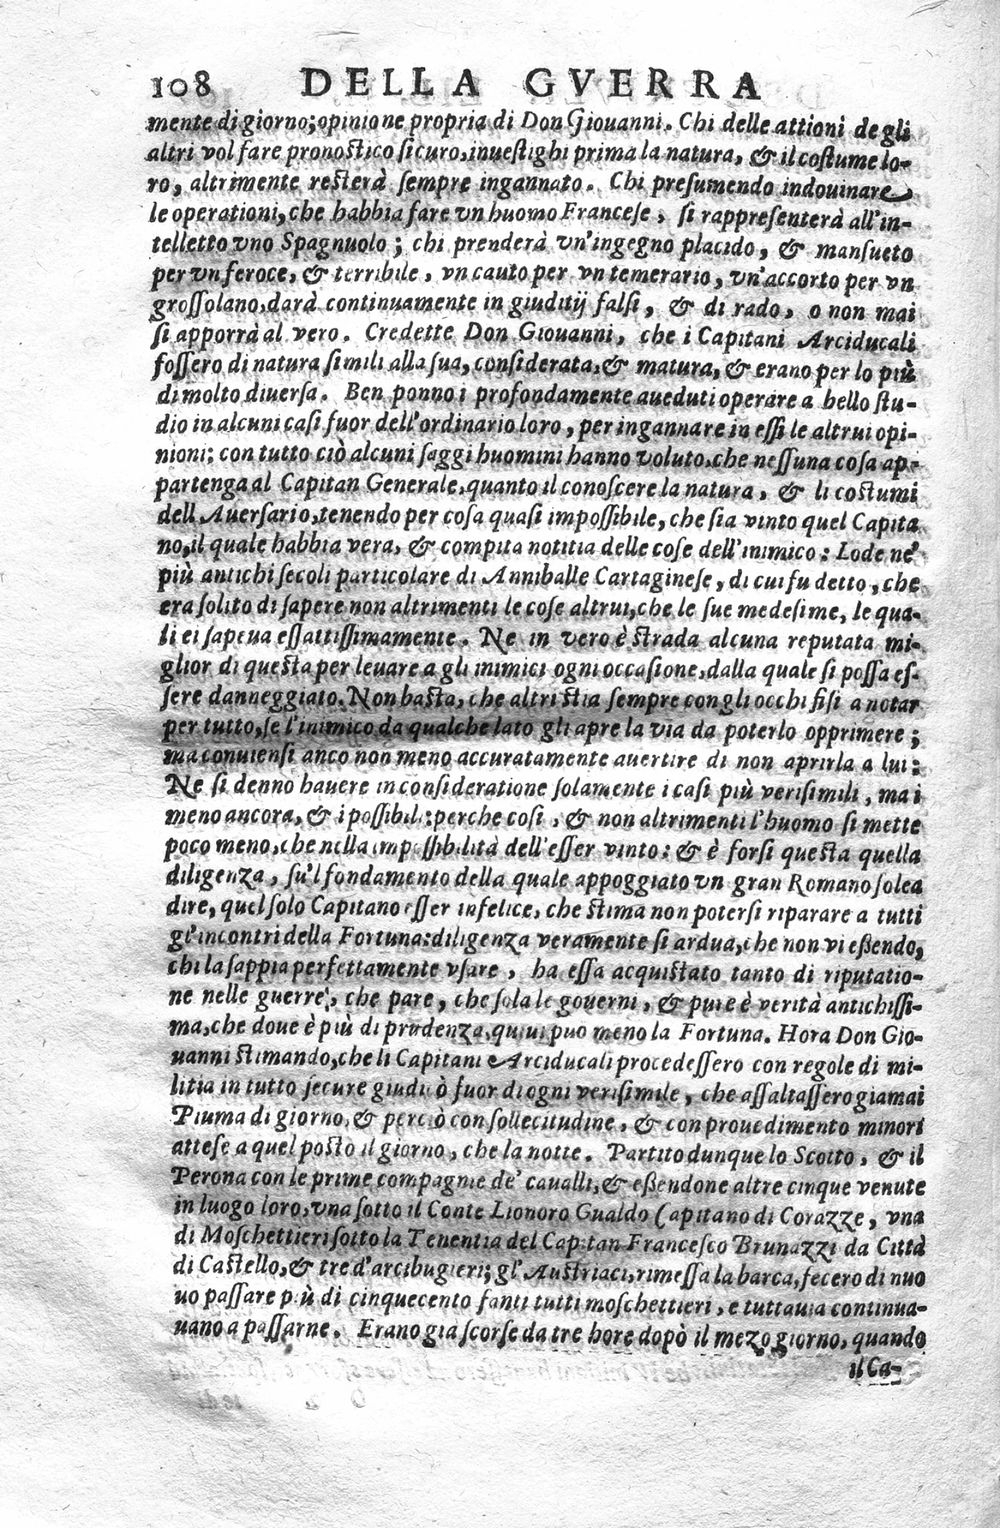 108 DELLA GVERRA
mente di giorno; opinione propria di Don Giouanni. Chi delle attioni degli
altri vol fare pronostico sicuro, inuestighi prima la natura, & il costume lo-
ro, altrimente resterà sempre ingannato. Chi presumendo indouinare
le operationi, che habbia fare vn huomo Francese, si rappresenterà all'in-
telletto vno Spagnuolo; chi prenderà vn'ingegno placido, & mansueto
per vn feroce, & terribile, vn cauto per vn temerario, vn'accorto per vn
grossolano, darà continuamente in giuditij falsi, & di rado, o non mai
si apporrà al vero. Credette Don Giouanni, che i Capitani Arciducali
fossero di natura simili alla sua, considerata, & matura, & erano per lo più
di molto diuersa. Ben ponno i profondamente aueduti operare a bello stu-
dio in alcuni casi fuor dell'ordinario loro, per ingannare in essi le altrui opi-
nioni; con tutto ciò alcuni saggi huomini hanno voluto, che nessuna cosa ap-
partenga al Capitan Generale, quanto il conoscere la natura, & li costumi
dell Auersario, tenendo per cosa quasi impossibile, che sia vinto quel Capita
no, il quale habbia vera, & compita notitia delle cose dell'inimico: Lode ne'
più antichi secoli particolare di Anniballe Cartaginese, di cui fu detto, che
era solito di sapere non altrimenti le cose altrui, che le sue medesime, le qua-
li ei sapeua essattissimamente. Ne in vero è strada alcuna reputata mi-
glior di questa per leuare a gli inimici ogni occasione, dalla quale si possa es-
sere danneggiato. Non basta, che altri stia sempre con gli occhi fisi a notar
per tutto, se l'inimico da qualche lato gli apre la via da poterlo opprimere;
ma conuiensi anco non meno accuratamente auertire di non aprirla a lui:
Ne si denno hauere in consideratione solamente i casi più verisimili, ma i
meno ancora, & i possibili: perche così, & non altrimenti l'huomo si mette
poco meno, che nella impossibilità dell'esser vinto: & è forsi questa quella
diligenza, su'l fondamento della quale appoggiato vn gran Romano solea
dire, quel solo Capitano esser infelice, che stima non potersi riparare a tutti
gl'incontri della Fortuna: diligenza veramente sì ardua, che non vi essendo,
chi la sappia perfettamente vsare, ha essa acquistato tanto di riputatio-
ne nelle guerre, che pare, che sola le governi, & pure è verità antichissi-
ma, che doue è più di prudenza, quiui può meno la Fortuna. Hora Don Gio-
uanni stimando, che li Capitani Arciducali procedessero con regole di mi-
litia in tutto secure giudicò fuor di ogni verisimile, che assaltassero giamai
Piuma di giorno, & perciò con sollecitudine, & con prouedimento minori
attese a quel posto il giorno, che la notte. Partito dunque lo Scotto, & il
Perona con le prime compagnie de' caualli, & essendone altre cinque venute
in luogo loro, vna sotto il Conte Lionoro Gualdo Capitano di Corazze, vna
di Moschettieri sotto la Tenentia del Capitan Francesco Brunazzi da Città
di Castello, & tre d'arcibugieri; gl'Austriaci, rimessa la barca, fecero di nuo
uo passare più di cinquecento fanti tutti moschettieri, e tuttauia continua-
uano a passarne. Erano già scorse da tre hore dopò il mezo giorno, quando
il Ca-